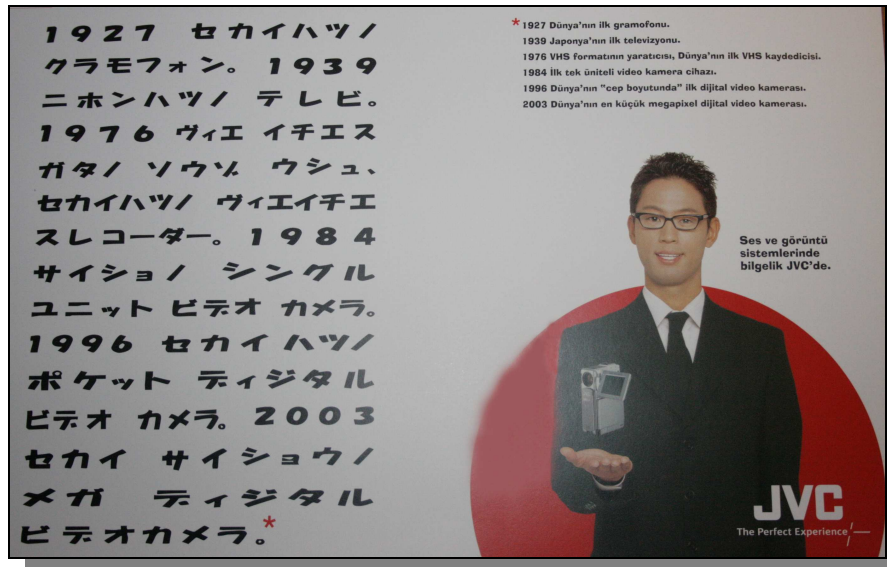 1927 セカイハツノ
クラモフォン。1939
ニホンハツノ テレビ。
1976 ヴィエ イチエス
ガタノ ソウゾ ウシュ、
セカイハツノ ヴィエイチエ
スレコーダー。1984
サイショノ シングル
ユニット ビデオ カメラ。
1996 セカイ ハツノ
ポケット ディジタル
ビデオ カメラ。2003
セカイ サイショウノ
メガ ディジタル
ビデオカメラ。*
*1927 Dünya'nın ilk gramofonu.
1939 Japonya'nın ilk televizyonu.
1976 VHS formatının yaratıcısı, Dünya'nın ilk VHS kaydedicisi.
1984 İlk tek üniteli video kamera cihazı.
1996 Dünya'nın "cep boyutunda" ilk dijital video kamerası.
2003 Dünya'nın en küçük megapixel dijital video kamerası.
Ses ve görüntü
sistemlerinde
bilgelik JVC'de.
JVC
The Perfect Experience